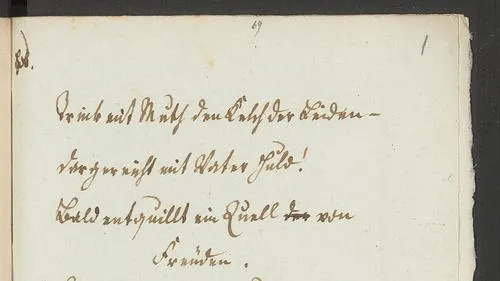 69
1
Trink mit Muth den Kelch der Leiden –
dargereicht mit Vater Huld!
Bald entquillt ein Quell der von
Freüden.